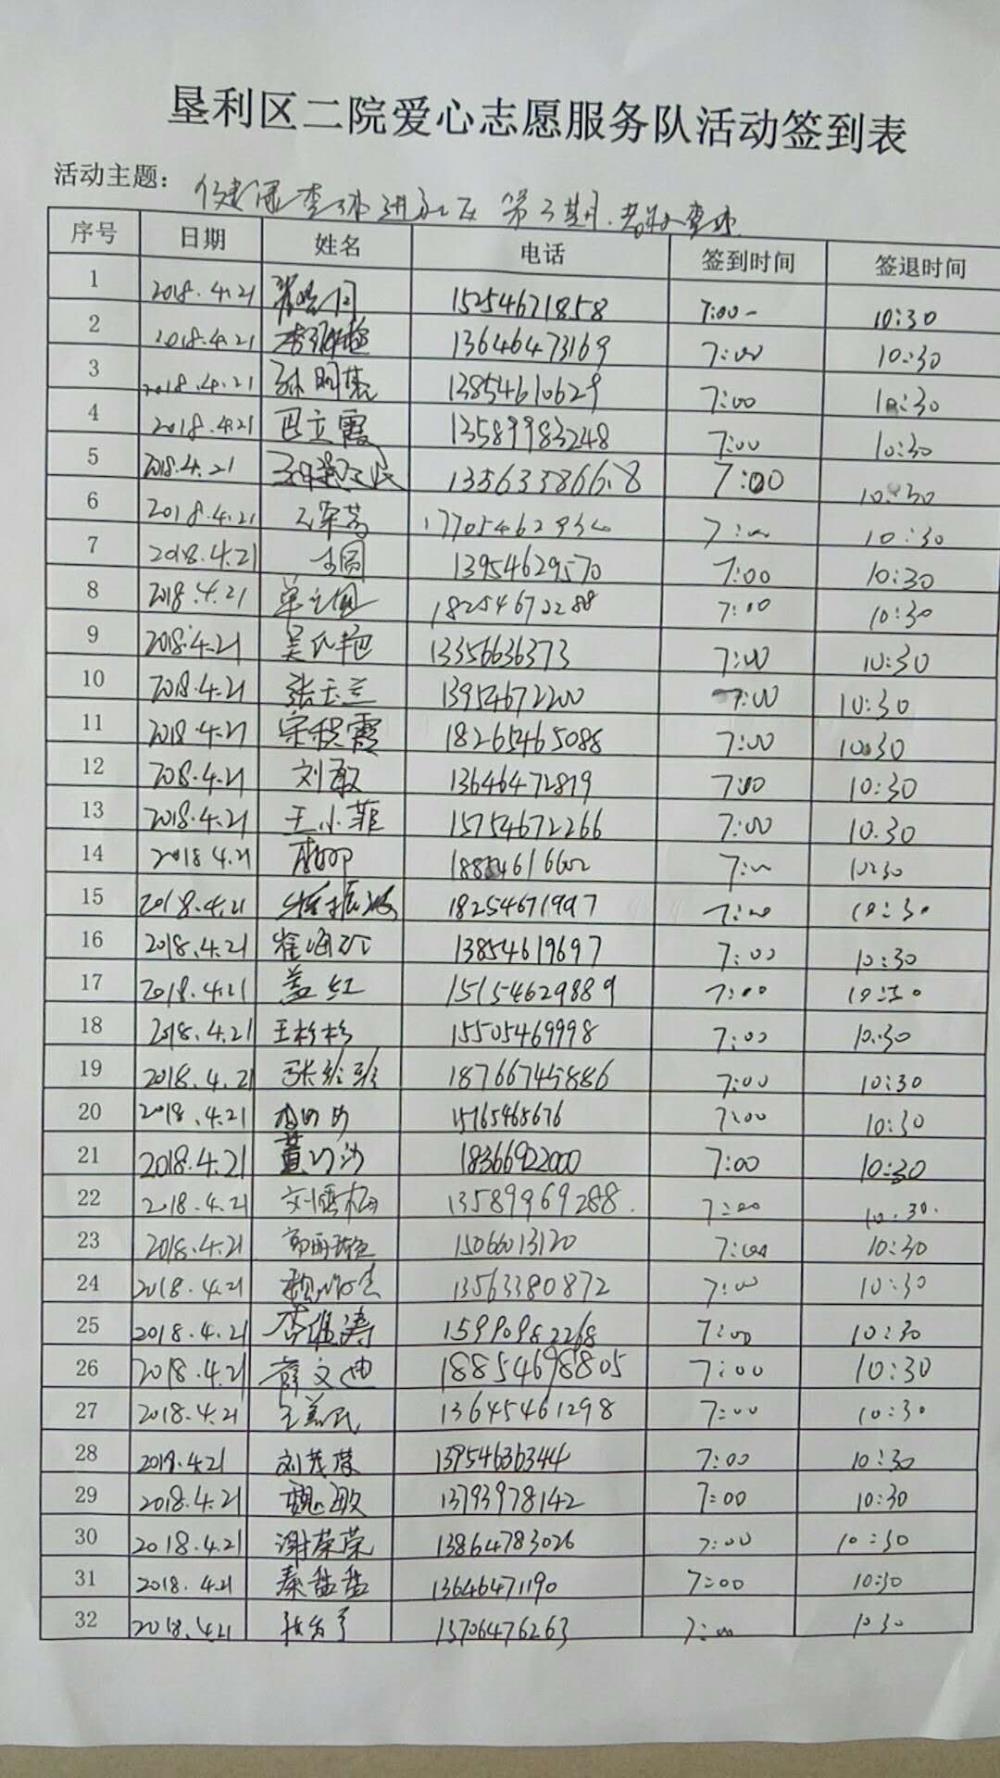 垦利区二院爱心志愿服务队活动签到表
活动主题：健康查体进社区 第3期
序号 日期 姓名 电话 签到时间 签退时间
1 2018.4.21 15254671858 7:00 10:30
2 2018.4.21 13646473169 7:00 10:30
3 2018.4.21 13854610629 7:00 10:30
4 2018.4.21 巴立霞 13589983248 7:00 10:30
5 2018.4.21 13563386668 7:00 10:30
6 2018.4.21 7:00 10:30
7 2018.4.21 王圆 13954629570 7:00 10:30
8 2018.4.21 18254672288 7:00 10:30
9 2018.4.21 吴民艳 13356636373 7:00 10:30
10 2018.4.21 张玉兰 13954672200 7:00 10:30
11 2018.4.21 宋积霞 18265465088 7:00 10:30
12 2018.4.21 刘敏 13646472819 7:00 10:30
13 2018.4.21 王小菲 15754672266 7:00 10.30
14 2018 4.21 18854616602 7:00 10:30
15 2018.4.21 18254671997 7:00 10:30
16 2018.4.21 13854619697 7:00 10:30
17 2018.4.21 盖红 15154629889 7:00 10:30
18 2018.4.21 王杉杉 15505469998 7:00 10:30
19 2018.4.21 18766745886 7:00 10:30
20 2018.4.21 15765465676 7:00 10:30
21 2018.4.21 18366922000 7:00 10:30
22 2018.4.21 13589969288 7:00 10:30
23 2018.4.21 15066013120 7:00 10:30
24 2018.4.21 13563380872 7:00 10:30
25 2018.4.21 李维涛 15990982268 7:00 10:30
26 2018.4.21 薛文迪 18854698805 7:00 10:30
27 2018.4.21 王美民 13645461298 7:00 10:30
28 2018.4.21 刘茂荣 13954636344 7:00 10:30
29 2018.4.21 魏敏 13793978142 7:00 10:30
30 2018.4.21 谢荣荣 13864783026 7:00 10:30
31 2018.4.21 秦盐盐 13646471190 7:00 10:30
32 2018.4.21 13706476263 7:00 10:30